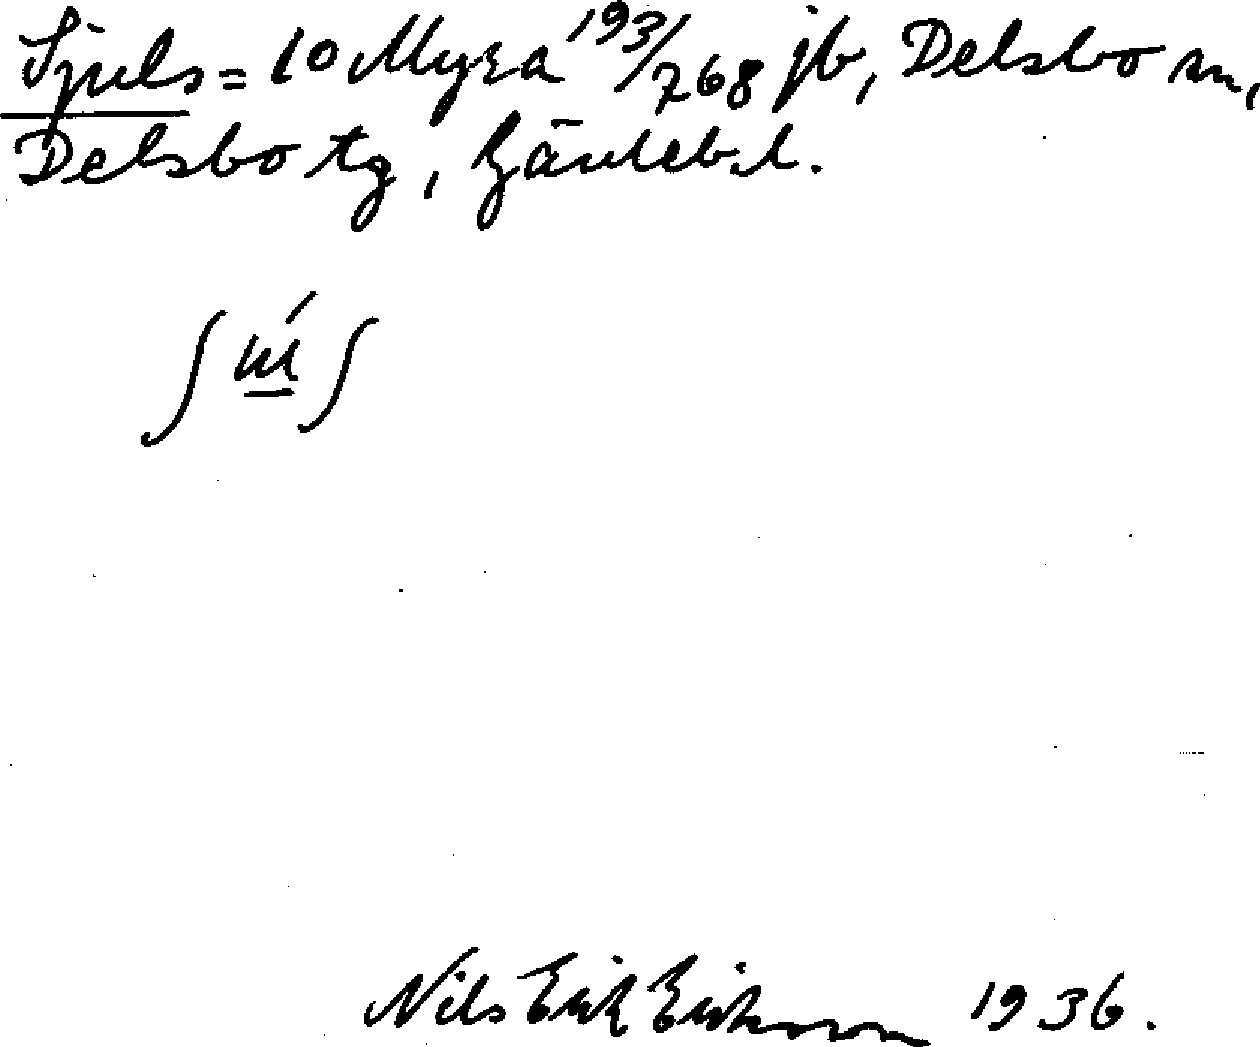 Sjuls = 10 Myra 193/768 jb, Delsbo sn,
Delsbo tg, Gävleb. l.
Nils Erik Eriksson 1936.